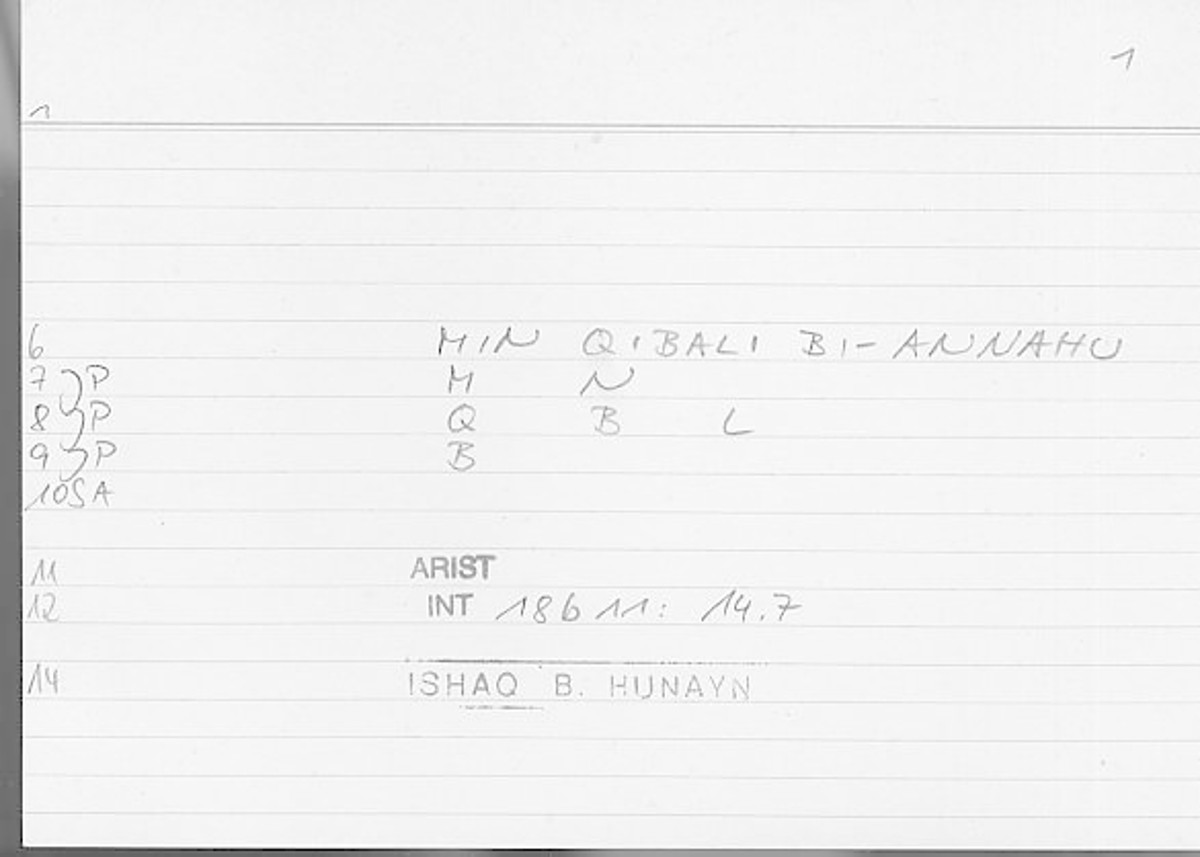 1
1
6 MIN QIBALI BI-ANNAHU
7 P M N
8 P Q B L
9 P B
10SA
11 ARIST
12 INT 186 11: 14.7
14 ISHAQ B. HUNAYN